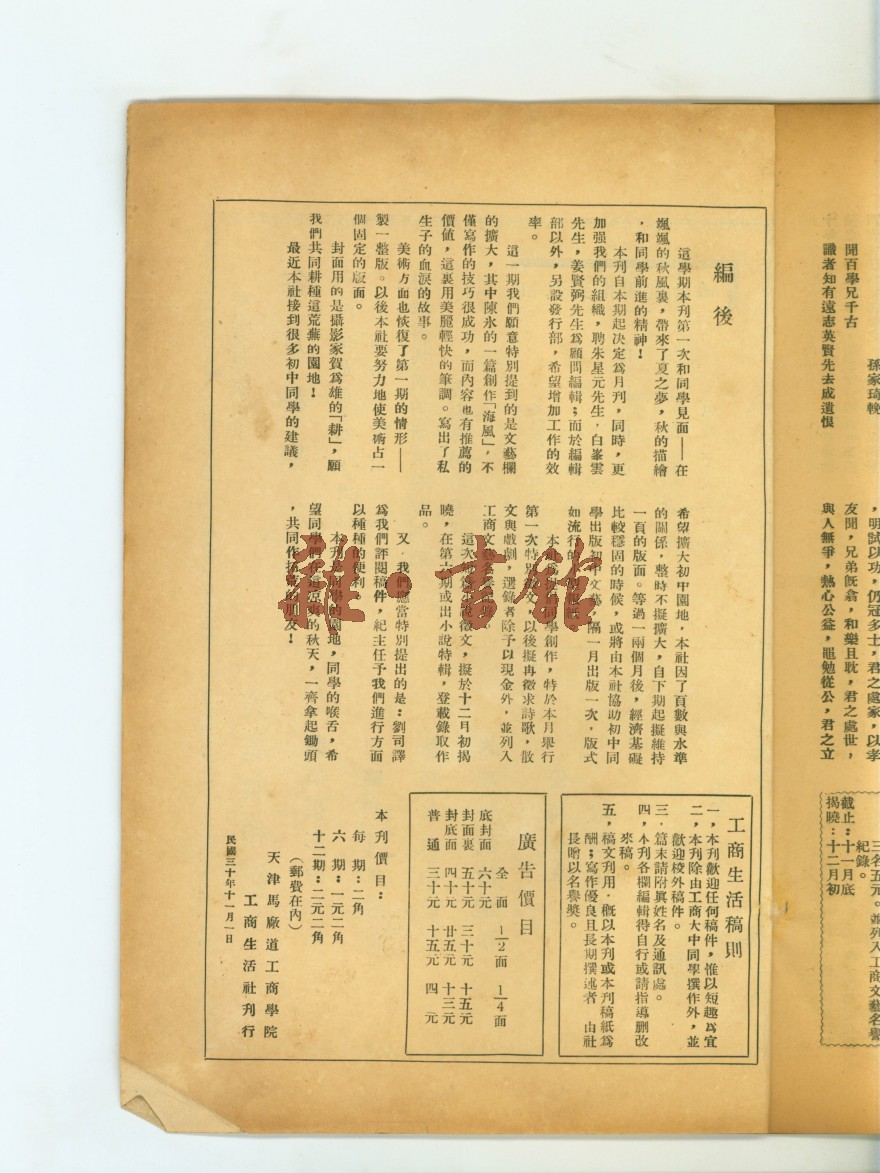 編後
這學期本刊第一次和同學見面——在
颯颯的秋風裏，帶來了夏之夢，秋的描繪
，和同學前進的精神！
本刊自本期起決定爲月刊，同時，更
加强我們的組織，聘朱星元先生，白峯雲
先生，姜賢弼先生爲顧問編輯；而於編輯
部以外，另設發行部，希望增加工作的效
率。
這一期我們願意特別提到的是文藝欄
的擴大，其中陳永的一篇創作「海風」，不
僅寫作的技巧很成功，而內容也有推薦的
價値，這裏用美麗輕快的筆調。寫出了私
生子的血淚的故事。
美術方面也恢復了第一期的情形——
製一整版。以後本社要努力地使美術占一
個固定的版面。
封面用的是攝影家賀爲雄的「耕」，願
我們共同耕種這荒蕪的園地！
最近本社接到很多初中同學的建議，
希望擴大初中園地，本社因了頁數與水準
的關係，整時不擬擴大，自下期起擬維持
一頁的版面。等過一兩個月後，經濟基礎
比較穩固的時候，或將由本社協助初中同
學出版初中文藝，隔一月出版一次，版式
如流行的
本社爲 同學創作，特於本月舉行
第一次特別徵文，以後擬再徵求詩歌，散
文與戲劇，選錄者除予以現金外，並列入
工商文藝名
這次 小說徵文，擬於十二月初揭
曉，在第六期或出小說特輯，登載錄取作
品。
又，我們應當特別提出的是：劉司鐸
爲我們評閱稿件，紀主任予我們進行方面
以種種的便利
本刊是同學的園地，同學的喉舌，希
望同學們在這涼爽的秋天，一齊拿起鋤頭
，共同作拓荒的朋友！
工商生活稿則
一，本刊歡迎任何稿件，惟以短趣爲宜
二，本刊除由工商大中同學撰作外，並
歡迎校外稿件。
三，篇末請附眞姓名及通訊處。
四，本刊各欄編輯得自行或請指導刪改
來稿。
五，稿文利用，概以本刊或本刊稿紙爲
酬；寫作優良且長期撰述者，由社
長贈以名譽獎。
廣告價目
全面 1/2面 1/4面
底封面 六十元
封面裏 五十元 三十元 十五元
封底面 四十元 廿五元 十三元
普通 三十元 十五元 四元
本刊價目：
每期：二角
六期：一元二角
十二期：二元二角
（郵費在內）
天津馬廠道工商學院
工商生活社刊行
民國三十年十一月一日
孫家琦輓
聞百學兄千古
識者知有遠志英賢先去成遺恨
，明試以功，仍冠多士，君之處家，以孝
友聞，兄弟旣翕，和樂且耽，君之處世，
與人無爭，熱心公益，黽勉從公，君之立
三名五元。並列入工商文藝名譽
紀錄。
截止：十一月底
揭曉：十二月初
雅·书馆